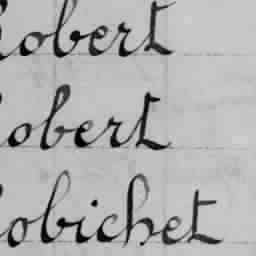 Robert
Robert
Robichet